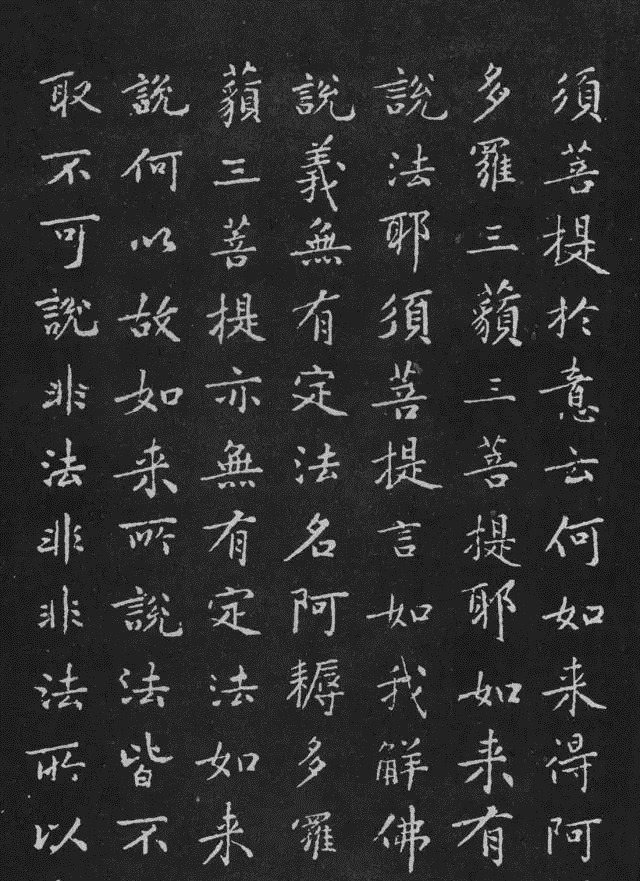 須菩提於意云何如来得阿
多羅三藐三菩提耶如来有
說法耶須菩提言如我解佛
說義無有定法名阿耨多羅
藐三菩提亦無有定法如来
說何以故如来所說法皆不
取不可說非法非非法所以